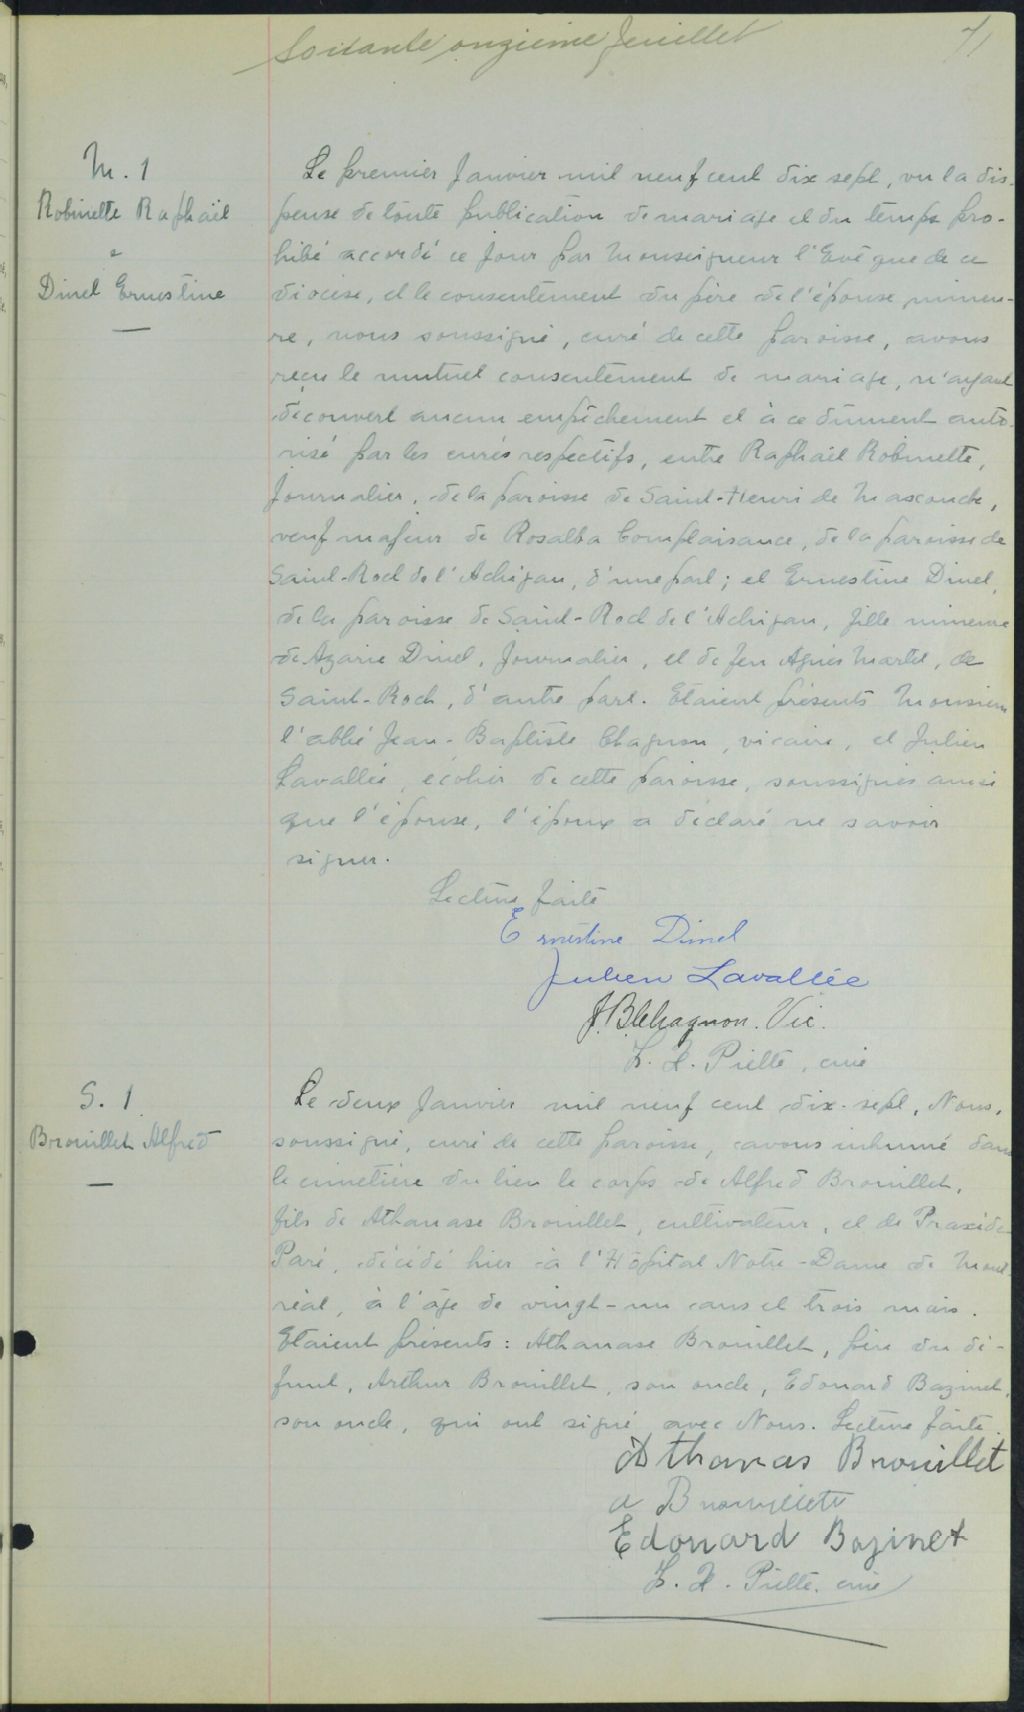 Soixante onzième feuillet 71
M. 1
Robinette Raphaël
&
Dinel Ernestine
Le premier Janvier mil neuf cent dix sept, vu la dis-
pense de toute publication de mariage et du temps pro-
hibé accordé ce jour par Monseigneur l'Evêque de ce
diocèse, et le consentement du père de l'épouse mineu-
re, nous soussigné, curé de cette paroisse, avons
reçu le mutuel consentement de mariage, n'ayant
découvert aucun empêchement et à ce dûment auto-
risé par les curés respectifs, entre Raphaël Robinette,
Journalier, de la paroisse de Saint-Henri de Mascouche,
veuf majeur de Rosalba Complaisance, de la paroisse de
Saint-Roch de l'Achigan, d'une part; et Ernestine Dinel,
de la paroisse de Saint-Roch de l'Achigan, fille mineure
de Azarie Dinel, Journalier, et de feu Agnès Martel, de
Saint-Roch, d'autre part. Etaient présents Monsieur
l'abbé Jean-Baptiste Chagnon, vicaire, et Julien
Lavallée, écolier de cette paroisse, soussignés ainsi
que l'épouse, l'époux a déclaré ne savoir
signer.
Lecture faite
Ernestine Dinel
Julien Lavallée
J.B Chagnon. Vic.
Piette, curé
S. 1
Brouillet Alfred
Le deux Janvier mil neuf cent dix-sept, Nous,
soussigné, curé de cette paroisse, avons inhumé dans
le cimetière du lieu le corps de Alfred Brouillet,
fils de Athanase Brouillet, cultivateur, et de Praxède
Paré, décédé hier à l'Hôpital Notre-Dame de Mont-
réal, à l'âge de vingt-un ans et trois mois.
Etaient présents: Athanase Brouillet, père du dé-
funt, Arthur Brouillet, son oncle, Edouard Bazinet,
son oncle, qui ont signé avec Nous. Lecture faite.
Athanas Brouillet
a Brouillette
Edouard Bazinet
Piette. curé